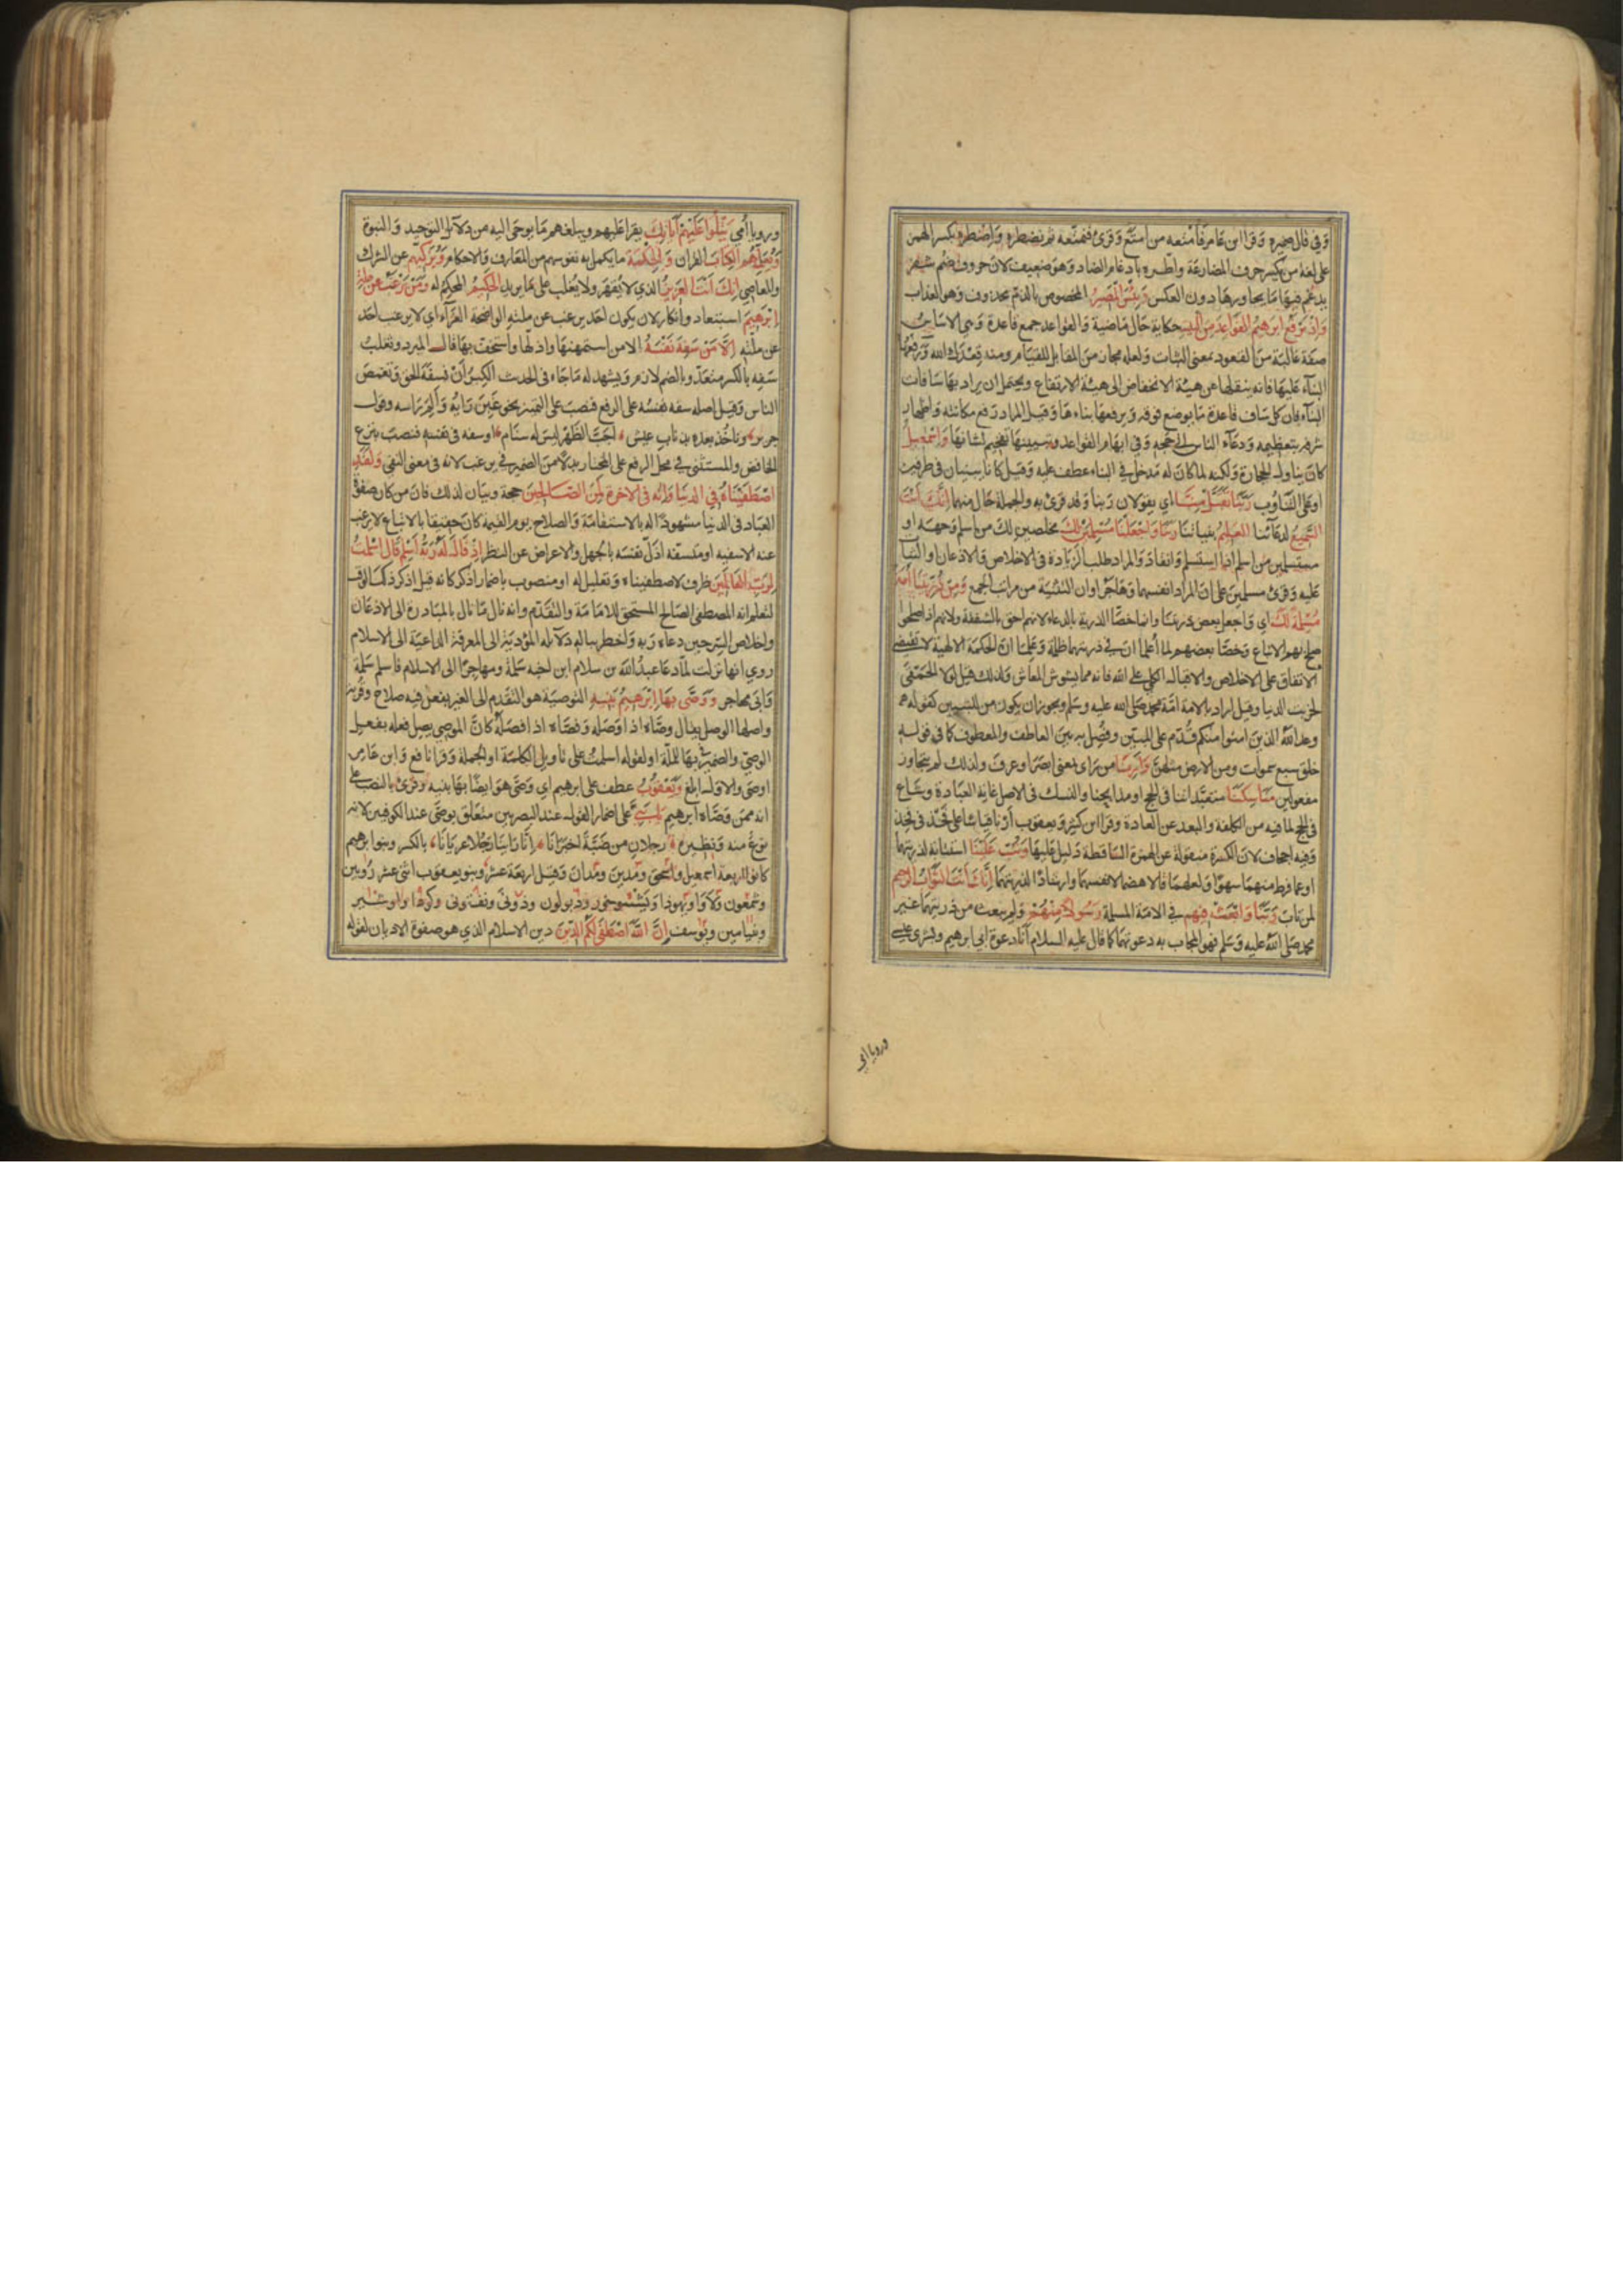 وفي قال ضميره وقرا ابن عامر فامتعه من امتع وقرئ فنمتعه ثم نضطره واضطره بكسر الهمزة
على لغة من يكسر حرف المضارعة واطره بادغام الضاد وهو ضعيف لان حروف ضم شفر
يدغم فيها ما يجاورها دون العكس وَبِئْسَ الْمَصِيرُ المخصوص بالذم محذوف وهو العذاب
وَاِذْ يَرْفَعُ اِبْرَهِيمُ الْقَوَاعِدَ مِنَ الْبَيْتِ حكاية حال ماضية والقواعد جمع قاعدة وهي الاساس
صفة غالبة من القعود بمعنى الثبات ولعله مجاز من المقابل للقيام ومنه قعدك الله ورفعها
البناء عليها فانه ينقلها عن هيئة الانخفاض الى هيئة الارتفاع ويحتمل ان يراد بها سافات
البناء فان كل ساف قاعدة ما يوضع فوقه ويرفعها بناءها وقيل المراد رفع مكانته واظهار
شرفه بتعظيمه ودعاء الناس الى حجه وفي ابهام القواعد وتبيينها تفخيم لشانها وَاِسْمَعِيلُ
كان يناوله الحجارة ولكنه لما كان له مدخل في البناء عطف عليه وقيل كانا يبنيان في طرفين
او على التناوب رَبَّنَا تَقَبَّلْ مِنَّا اي يقولان ربنا وقد قرئ به والجملة حال منهما اِنَّكَ اَنْتَ
السَّمِيعُ لدعائنا الْعَلِيمُ بنياتنا رَبَّنَا وَاجْعَلْنَا مُسْلِمَيْنِ لَكَ مخلصين لك من اسلم وجهه او
مستسلمين من اسلم اذا استسلم وانقاد والمراد طلب الزيادة في الاخلاص والاذعان او الثبات
عليه وقرئ مسلمين على ان المراد انفسهما وهاجر او ان التثنية من مراتب الجمع وَمِنْ ذُرِّيَّتِنَا اُمَّةً
مُسْلِمَةً لَكَ اي واجعل بعض ذريتنا وانما خصا الذرية بالدعاء لانهم احق بالشفقة ولانهم اذا صلحوا
صلح بهم الاتباع وخصا بعضهم لما اعلما ان في ذريتهما ظلمة وعلما ان الحكمة الالهية لا تقتضي
الاتفاق على الاخلاص والاقبال الكلي على الله فانه مما يشوش المعاش ولذلك قيل لولا الحمقى
لخربت الدنيا وقيل اراد بالامة امة محمد صلى الله عليه وسلم ويجوز ان يكون من للتبيين كقوله
وعد الله الذين امنوا منكم قدم على المبين وفصل به بين العاطف والمعطوف كما في قوله
خلق سبع سموات ومن الارض مثلهن وَاَرِنَا من راى بمعنى ابصر او عرف ولذلك لم يتجاوز
مفعولين مَنَاسِكَنَا متعبداتنا في الحج او مذابحنا والنسك في الاصل غاية العبادة وشاع
في الحج لما فيه من الكلفة والبعد عن العادة وقرا ابن كثير ويعقوب ارنا قياسا على فخذ في فخذ
وفيه اجحاف لان الكسرة منقولة عن الهمزة الساقطة دليل عليها وَتُبْ عَلَيْنَا استتابة لذريتهما
او عما فرط منهما سهوا ولعلهما قالا هضما لانفسهما وارشادا لذريتهما اِنَّكَ اَنْتَ التَّوَّابُ الرَّحِيمُ
لمن تاب رَبَّنَا وَابْعَثْ فِيهِمْ في الامة المسلمة رَسُولًا مِنْهُمْ ولم يبعث من ذريتهما غير
محمد صلى الله عليه وسلم فهو المجاب به دعوتهما كما قال عليه السلام انا دعوة ابي ابرهيم وبشرى عيسى
ورويا امي
ورويا امي يَتْلُوا عَلَيْهِمْ اٰيَاتِكَ يقرا عليهم ويبلغهم ما يوحى اليه من دلائل التوحيد والنبوة
وَيُعَلِّمُهُمُ الْكِتَابَ القران وَالْحِكْمَةَ ما يكمل به نفوسهم من المعارف والاحكام وَيُزَكِّيهِمْ عن الشرك
والمعاصي اِنَّكَ اَنْتَ الْعَزِيزُ الذي لا يقهر ولا يغلب على ما يريد الْحَكِيمُ المحكم له وَمَنْ يَرْغَبُ عَنْ مِلَّةِ
اِبْرَهِيمَ استبعاد وانكار لان يكون احد يرغب عن ملته الواضحة الغراء اي لا يرغب احد
عن ملته اِلَّا مَنْ سَفِهَ نَفْسَهُ الا من استمهنها واذلها واستخف بها قال المبرد وثعلب
سفه بالكسر متعد وبالضم لازم ويشهد له ما جاء في الحديث الكبر ان تسفه الحق وتغمص
الناس وقيل اصله سفه نفسه على الرفع فنصب على التميز نحو غبن رايه والم راسه وقول
جرير وناخذ بعده بذناب عيش اجب الظهر ليس له سنام او سفه في نفسه فنصب بنزع
الخافض والمستثنى في محل الرفع على المختار بدلا من الضمير في يرغب لانه في معنى النفي وَلَقَدِ
اصْطَفَيْنَاهُ فِي الدُّنْيَا وَاِنَّهُ فِي الْاٰخِرَةِ لَمِنَ الصَّالِحِينَ حجة وبيان لذلك فان من كان صفوة
العباد في الدنيا مشهودا له بالاستقامة والصلاح يوم القيمة كان حقيقا بالاتباع لا يرغب
عنه الا سفيه او متسفه اذل نفسه بالجهل والاعراض عن النظر اِذْ قَالَ لَهُ رَبُّهُ اَسْلِمْ قَالَ اَسْلَمْتُ
لِرَبِّ الْعَالَمِينَ ظرف لاصطفيناه وتعليل له او منصوب باضمار اذكر كانه قيل اذكر ذلك الوقت
لتعلم انه المصطفى الصالح المستحق للامامة والتقدم وانه نال ما نال بالمبادرة الى الاذعان
واخلاص السر حين دعاه ربه واخطر بباله دلائله المؤدية الى المعرفة الداعية الى الاسلام
روي انها نزلت لما دعا عبد الله بن سلام ابن اخيه سلمة ومهاجرا الى الاسلام فاسلم سلمة
وابى مهاجر وَوَصَّى بِهَا اِبْرَهِيمُ بَنِيهِ التوصية هو التقدم الى الغير بفعل فيه صلاح وقربة
واصلها الوصل يقال وصاه اذا وصله وفصاه اذا فصله كان الموصي يصل فعله بفعل
الوصي والضمير في بها للملة او لقوله اسلمت على تاويل الكلمة او الجملة وقرا نافع وابن عامر
اوصى والاول ابلغ وَيَعْقُوبُ عطف على ابرهيم اي وصى هو ايضا بها بنيه وقرئ بالنصب على
انه ممن وصاه ابرهيم يَا بَنِيَّ على اضمار القول عند البصريين متعلق بوصى عند الكوفيين لانه
نوع منه ونظيره رجلان من ضبة اخبرانا انا راينا رجلا عريانا بالكسر وبنو ابرهيم
كانوا اربعة اسمعيل واسحق ومدين ومدان وقيل اربعة عشر وبنو يعقوب اثنى عشر روبين
وشمعون ولاوا ويهوذا ويشسوخور وزبولون وذونى ونفتونى وكوذا واوشير
وبنيامين ويوسف اِنَّ اللّٰهَ اصْطَفَى لَكُمُ الدِّينَ دين الاسلام الذي هو صفوة الاديان لقوله